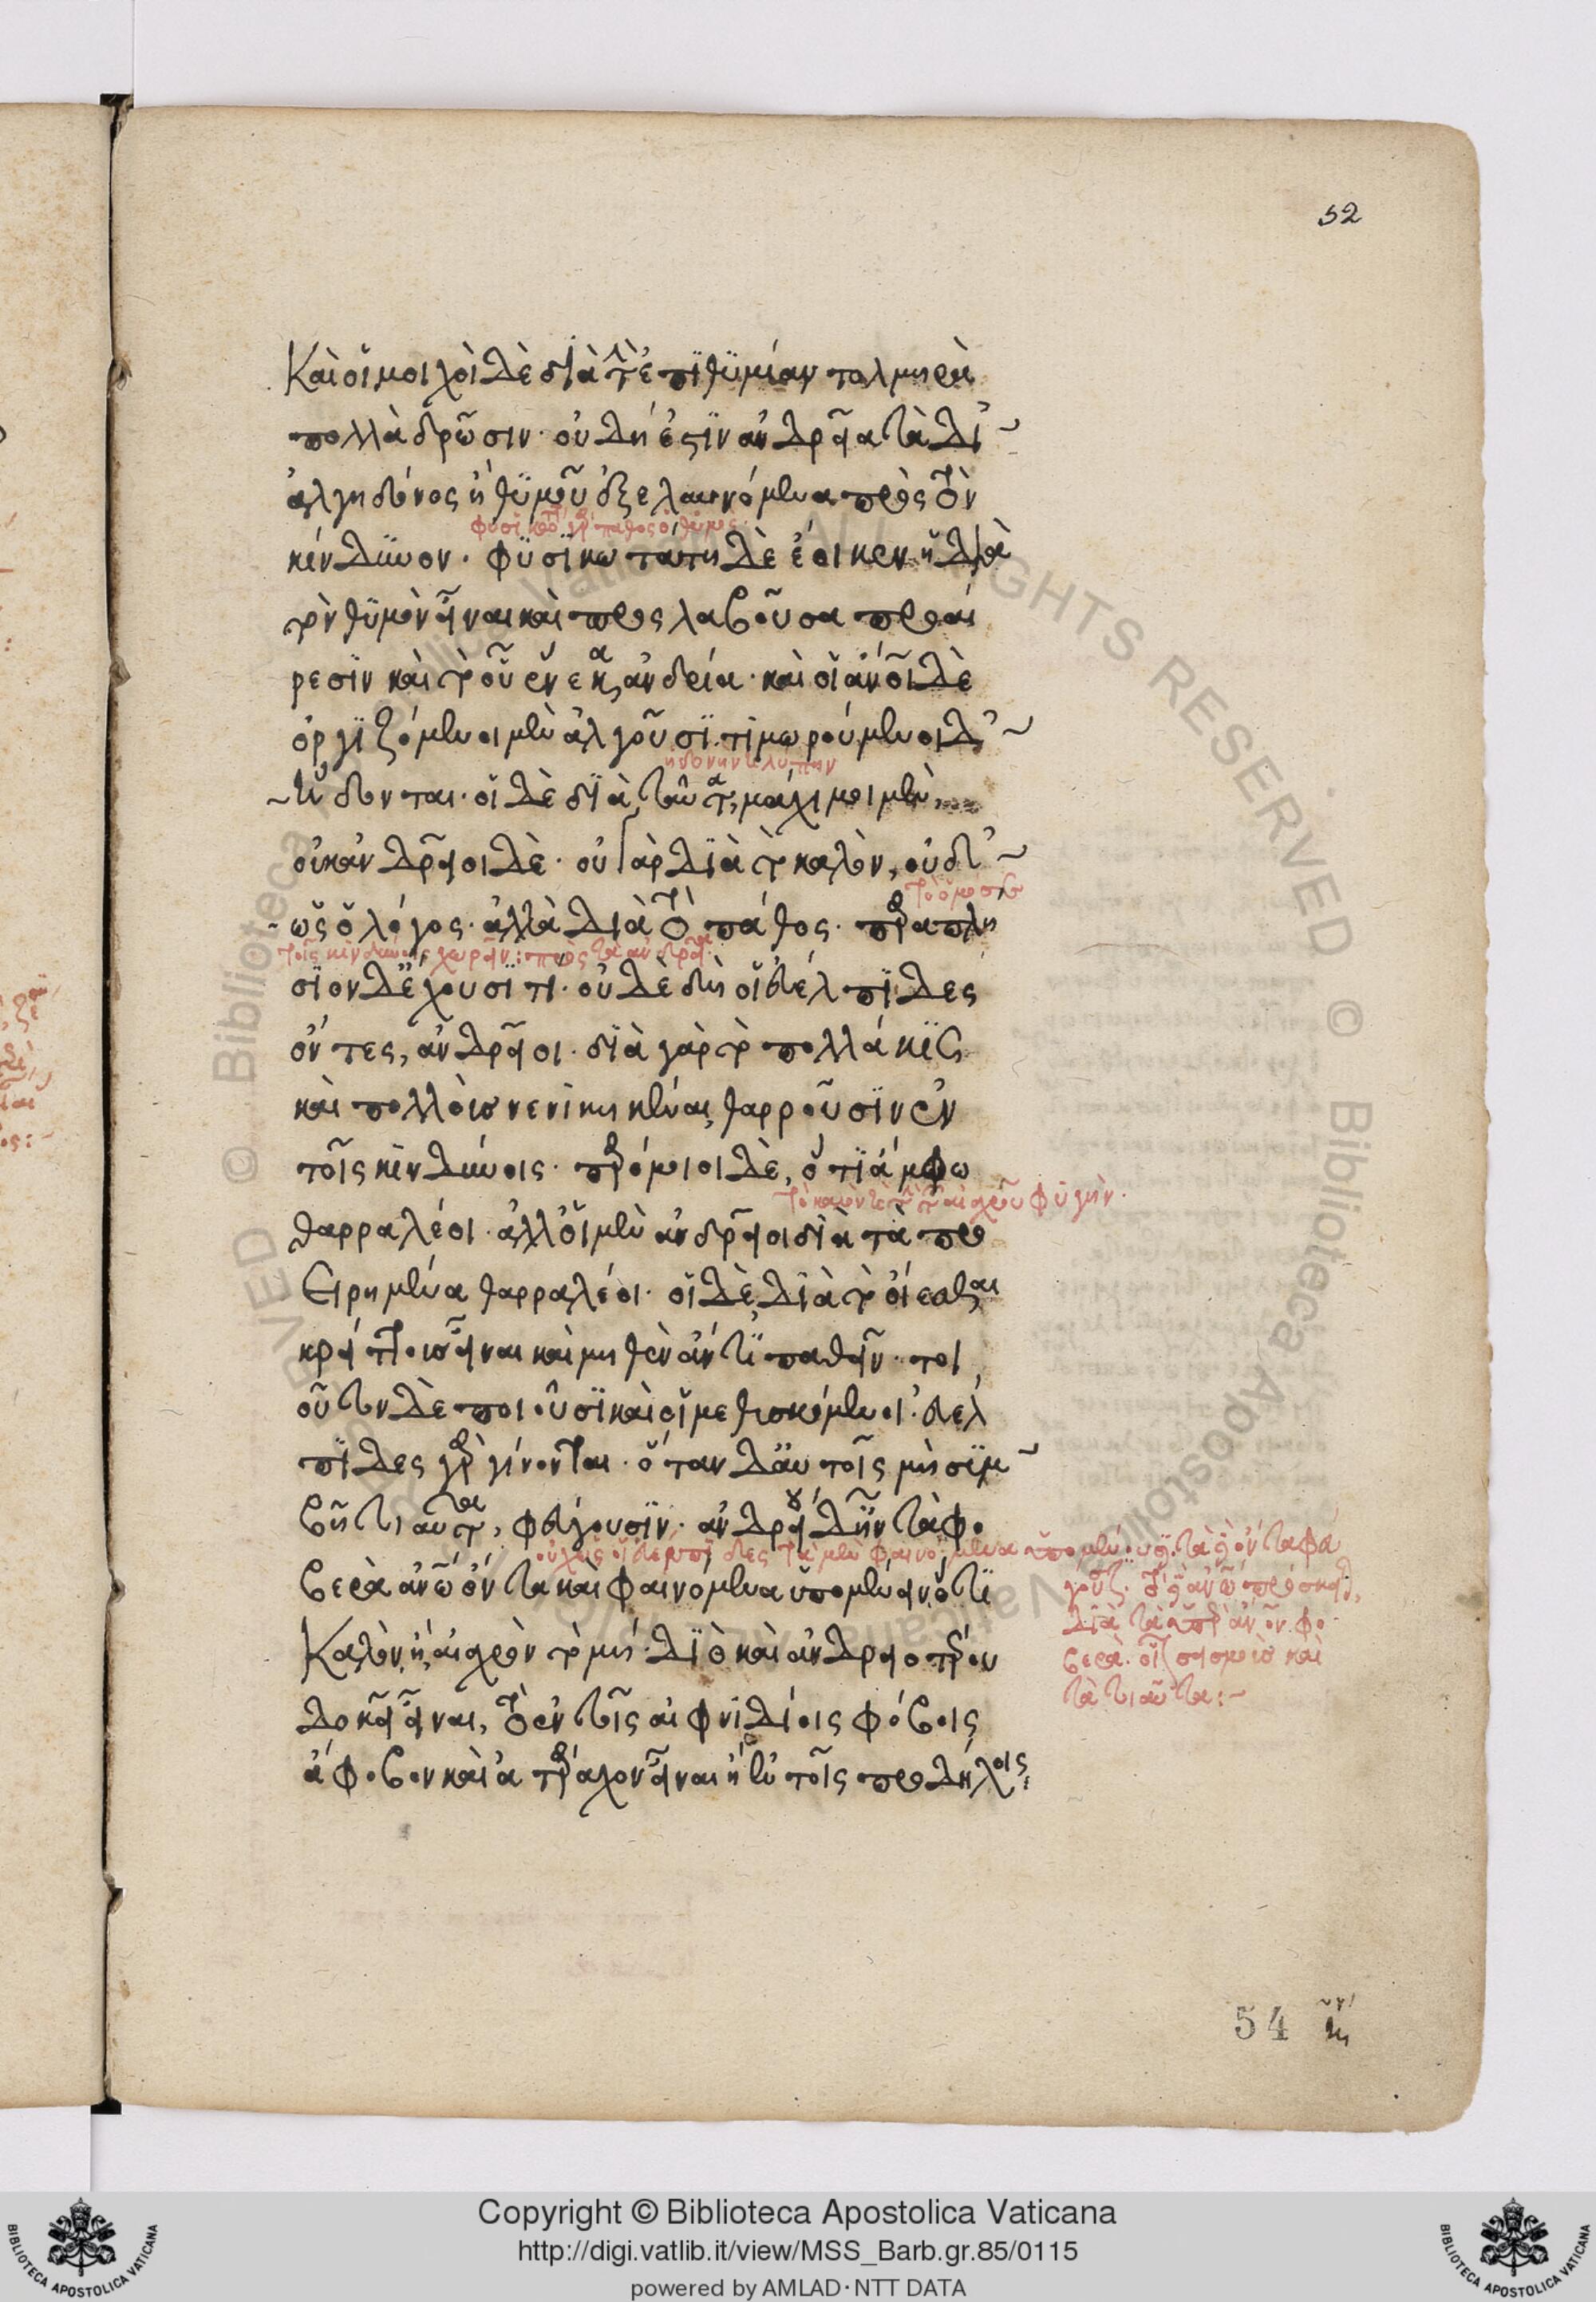 52
Καὶ οἱ μοιχοὶ δὲ διὰ τὴν ἐπιθυμίαν τολμηρὰ
πολλὰ δρῶσιν· οὐ δή ἐστιν ἀνδρεῖα τὰ δι'
ἀλγηδόνος ἢ θυμοῦ ἐξελαυνόμενα πρὸς τὸν
κίνδυνον· φυσικωτάτη δὲ ἔοικεν ἡ διὰ
τὸν θυμὸν εἶναι καὶ προσλαβοῦσα προαί
ρεσιν καὶ τὸ οὗ ἕνεκα ἀνδρεία· καὶ οἱ ἄνοι δὲ
ὀργιζόμενοι μὲν ἀλγοῦσι τιμωρούμενοι δ'
ἥδονται· οἱ δὲ διὰ ταῦτα, μάχιμοι μὲν,
οὐκ ἀνδρεῖοι δὲ· οὐ γὰρ διὰ τὸ καλὸν, οὐδ'
ὡς ὁ λόγος· ἀλλὰ διὰ τὸ πάθος· παραπλή
σιον δ' ἔχουσί τι· οὐδὲ δὴ οἱ εὐέλπιδες
ὄντες, ἀνδρεῖοι· διὰ γὰρ τὸ πολλάκις
καὶ πολλοὺς νενικηκέναι, θαρροῦσιν ἐν
τοῖς κινδύνοις· παρόμοιοι δὲ, ὅτι ἄμφω
θαρραλέοι· ἀλλ' οἱ μὲν ἀνδρεῖοι διὰ τὰ προ
Ειρημένα θαρραλέοι· οἱ δὲ διὰ τὸ οἴεσθαι
κρείττους εἶναι καὶ μηθὲν ἀντιπαθεῖν· τοι
οῦτον δὲ ποιοῦσι καὶ οἱ μεθυσκόμενοι· εὐέλ
πιδες γὰρ γίνονται· ὅταν δ' αὐτοῖς μὴ συμ
βῇ τοιαῦτα, φεύγουσιν· ἀνδρείου δ' ἦν τὰ φο
βερὰ ἀνῶ ὄντα καὶ φαινόμενα ὑπομένειν ὅτι
Καλὸν, ἢ αἰσχρὸν τὸ μή· διὸ καὶ ἀνδρειοτέρου
δοκεῖ εἶναι, τὸ ἐν τοῖς αἰφνιδίοις φόβοις
ἄφοβον καὶ ἀτάραχον εἶναι ἢ ἐν τοῖς προδήλοις:
ἡδονὴν λύπην
τοῖς κινδύνοις χωρεῖν: πρὸς τὰ ἀνδρεῖα
διὰ τὰ
βερὰ· οἷον σεισμοὺς καὶ
τὰ τοιαῦτα:~
54
Copyright © Biblioteca Apostolica Vaticana
http://digi.vatlib.it/view/MSS_Barb.gr.85/0115
powered by AMLAD·NTT DATA
BIBLIOTECA APOSTOLICA VATICANA
BIBLIOTECA APOSTOLICA VATICANA